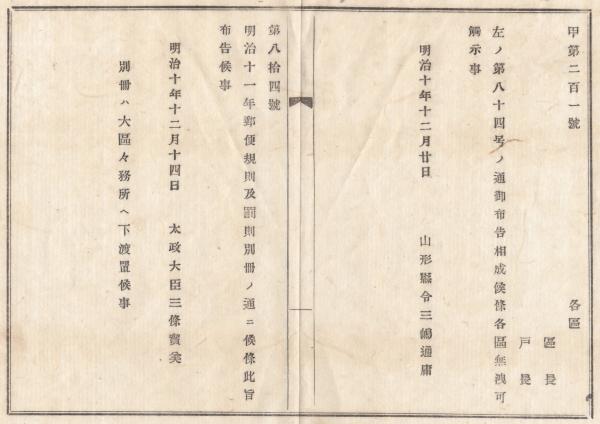 甲第二百一號
各區
區長
戸長
左ノ第八十四号ノ通御布告相成候條各區無洩可
觸示事
明治十年十二月廿日　山形縣令三嶋通庸
第八拾四號
明治十一年郵便規則及罰則別冊ノ通ニ候條此旨
布告候事
明治十年十二月十四日　太政大臣三條實美
別冊ハ大區々務所ヘ下渡置候事